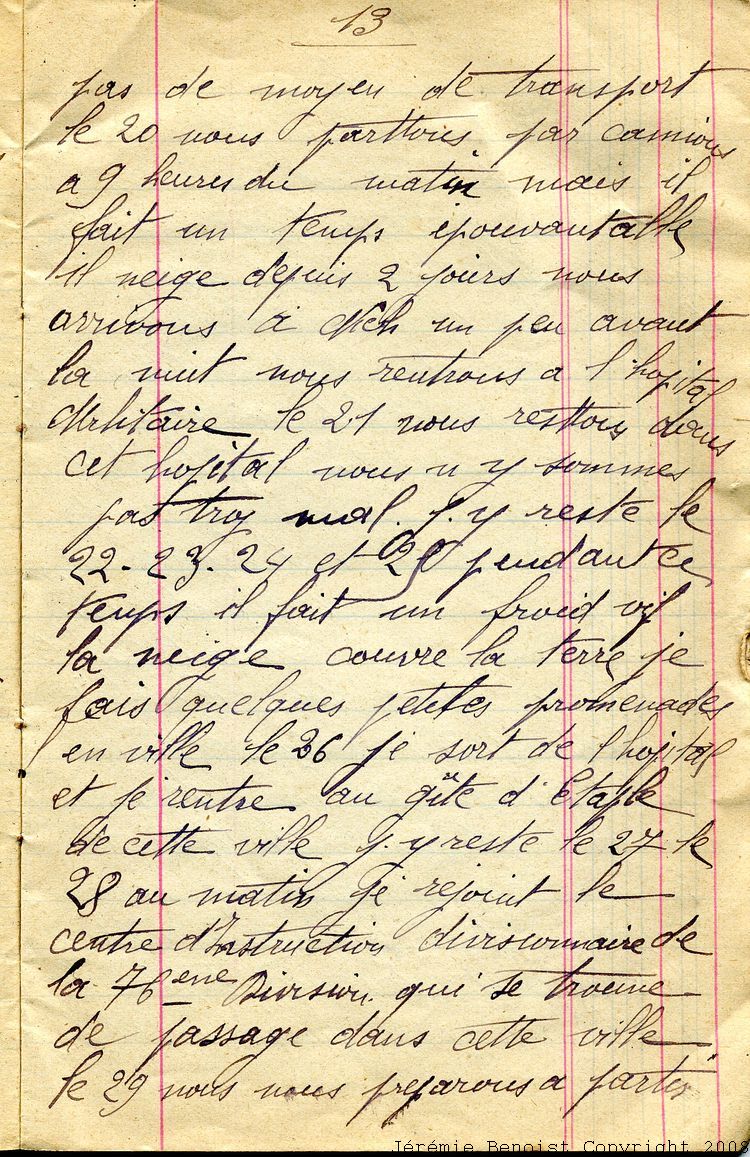 13
pas de moyen de transport
le 20 nous parttons par camions
a 9 heures du matin mais il
fait un temps épouvantable
il neige depuis 2 jours nous
arrivons à Nich un peu avant
la nuit nous rentrons a l'hopital
Militaire le 21 nous restons dans
cet hopital nous n y sommes
pas trop mal. j. y reste le
22-23-24 et 25 pendant ce
temps il fait un froid vif
la neige couvre la terre je
fais quelques petites promenades
en ville le 26 je sort de l hopital
et je rentre au gîte d'étaple
de cette ville j. y reste le 27 le
28 au matin je rejoint le
centre d'Instruction divisionnaire de
la 76ene Division qui se trouve
de passage dans cette ville
le 29 nous nous preparons a partir
Jérémie Benoist Copyright 2008